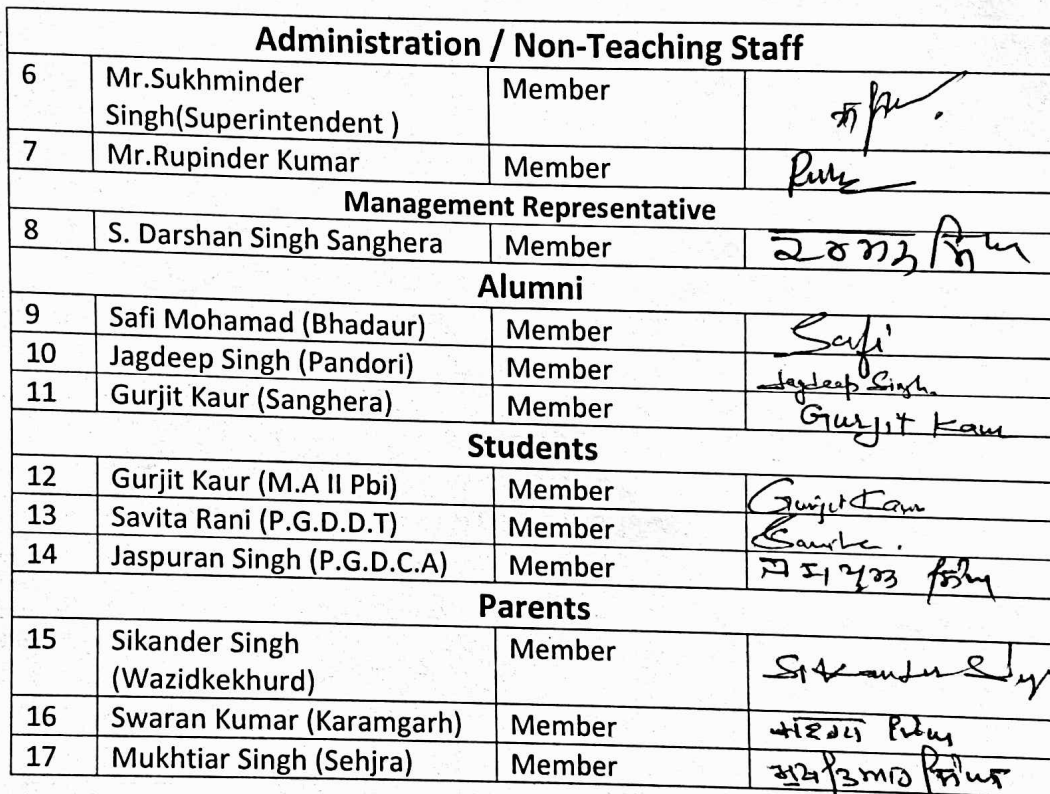 Administration / Non-Teaching Staff
6 Mr.Sukhminder Member
Singh(Superintendent )
7 Mr.Rupinder Kumar Member
Management Representative
8 S. Darshan Singh Sanghera Member ਦਰਸ਼ਨ ਸਿੰਘ
Alumni
9 Safi Mohamad (Bhadaur) Member Safi
10 Jagdeep Singh (Pandori) Member Jagdeep Singh.
11 Gurjit Kaur (Sanghera) Member Gurjit Kaur
Students
12 Gurjit Kaur (M.A II Pbi) Member Gurjit Kaur
13 Savita Rani (P.G.D.D.T) Member Savita.
14 Jaspuran Singh (P.G.D.C.A) Member ਜਸਪੂਰਨ ਸਿੰਘ
Parents
15 Sikander Singh Member Sikander Singh
(Wazidkekhurd)
16 Swaran Kumar (Karamgarh) Member
17 Mukhtiar Singh (Sehjra) Member ਮੁਖਤਿਆਰ ਸਿੰਘ